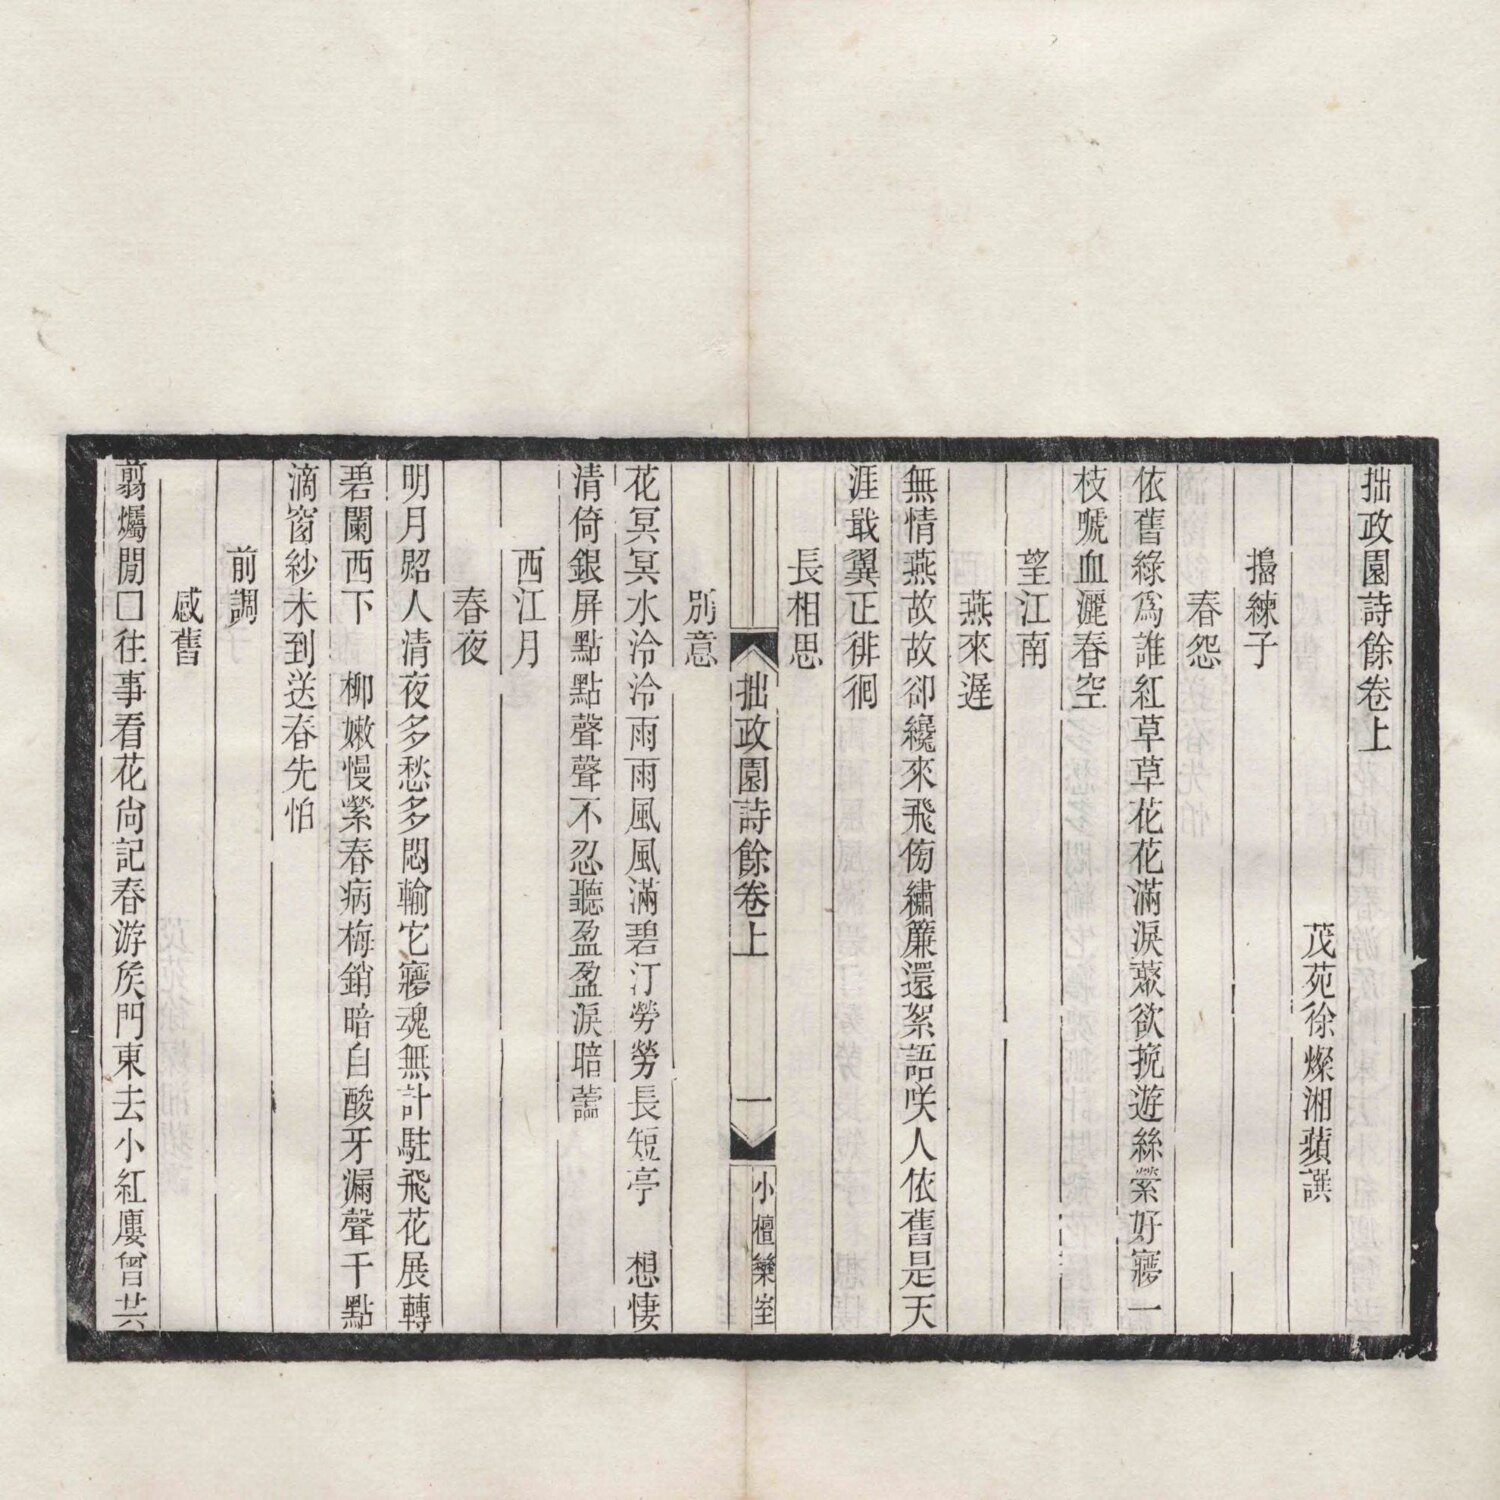 拙政園詩餘卷上
茂苑徐燦湘蘋譔
搗練子
春怨
依舊綠爲誰紅草草花花滿淚藂欲挽遊絲縈好寱一
枝嗁血灑春空
望江南
燕來遲
無情燕故故卻纔來飛傍繡簾還絮語咲人依舊是天
涯敢翼正徘徊
長相思
拙政園詩餘卷上
一
小檀欒室
別意
花冥冥水泠泠雨雨風風滿碧汀勞勞長短亭　想悽
清倚銀屏點點聲聲不忍聽盈盈淚暗蕾
西江月
春夜
明月照人清夜多愁多悶輸它寱魂無計駐飛花展轉
碧闌西下　柳嫩慢縈春病梅銷暗自酸牙漏聲千點
滴窗紗未到送春先怕
前調
感舊
翦燭閒口往事看花尙記春游矦門東去小紅廔曾共